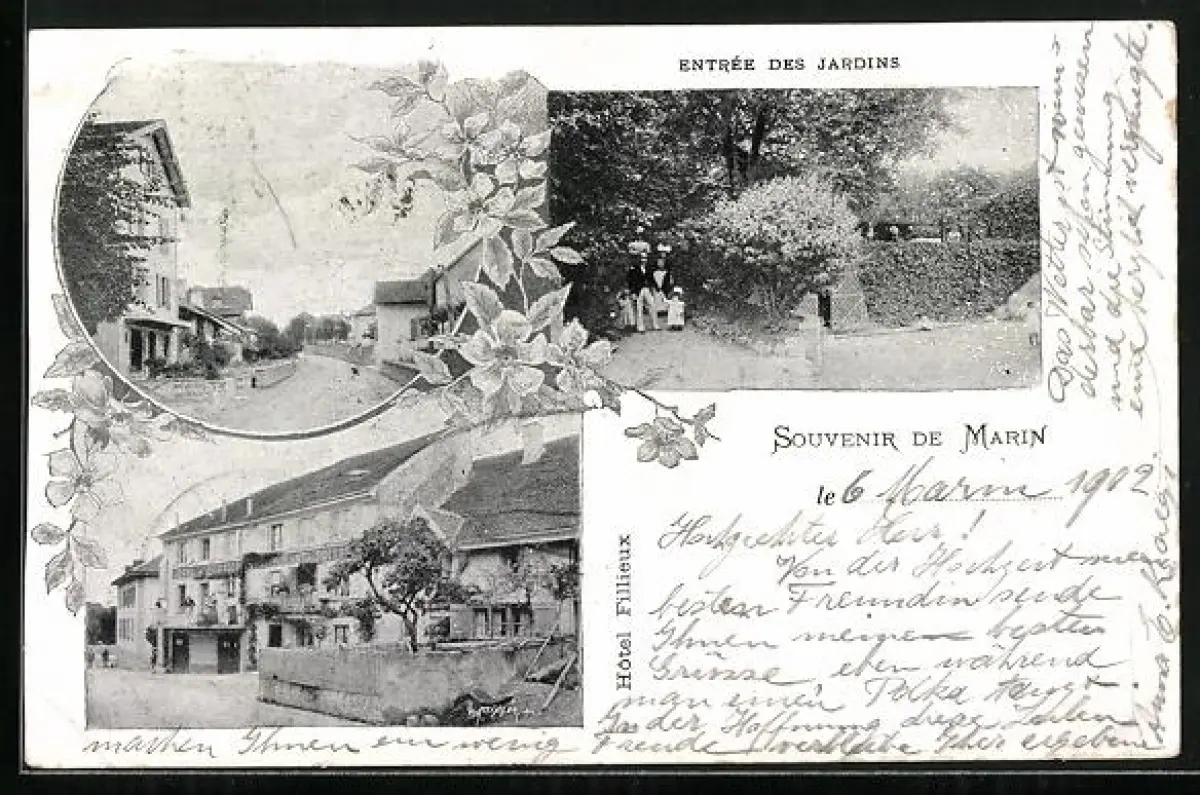 ENTRÉE DES JARDINS
SOUVENIR DE MARIN
le 6 Marin 1902
Hôtel Fillieux
Hochgeehrter Herr!
Von der Hochzeit meiner
besten Freundin sende
Ihnen meine besten
Grüsse, eben während
man einen Polka tanzt.
In der Hoffnung diese Zeilen
machen Ihnen ein wenig Freude verbleibe Ihre ergebene
Anna
Das Wetter ist wunderbar
und die Stimmung
eine vergnügte.